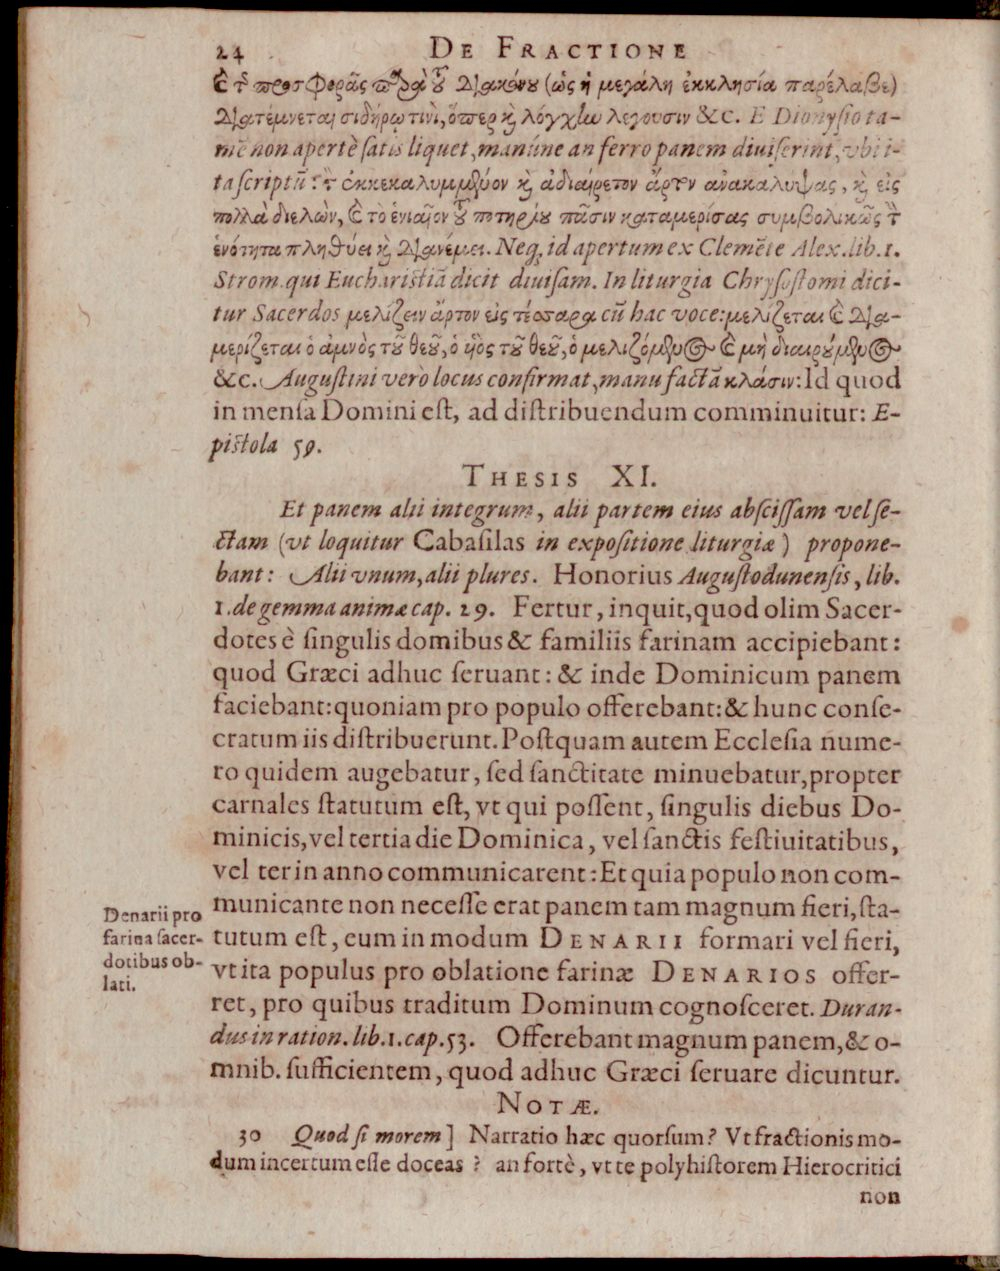 24 DE FRACTIONE
ϗ τῆς προσφορᾶς παρὰ τοῦ διακόνου (ὡς ἡ μεγάλη ἐκκλησία παρέλαβε)
διατέμνεται σιδήρῳ τινὶ, ὅπερ ϗ λόγχἠν λέγουσιν &c. E Dionysio ta-
mē non apertè satis liquet, manúne an ferro panem diuiserint, vbi i-
ta scriptū: τὸν ἐκκεκαλυμμένον ϗ ἀδιαίρετον ἄρτον ἀνακαλυψας, ϗ εἰς
πολλὰ διελὼν, ϗ τὸ ἑνιαῖον τοῦ ποτηρίου πᾶσιν καταμερίσας συμβολικῶς τὴν
ἑνότητα πληθύει ϗ διανέμει. Neq; id apertum ex Clemēte Alex. lib. 1.
Strom. qui Eucharistiā dicit diuisam. In liturgia Chrysostomi dici-
tur Sacerdos μελίζειν ἄρτον εἰς τέσσαρα cū hac voce: μελίζεται ϗ δια-
μερίζεται ὁ ἀμνὸς τοῦ θεοῦ, ὁ ἡὸς τοῦ θεοῦ, ὁ μελιζόμενος ϗ μὴ διαιρούμενος
&c. Augustini verò locus confirmat, manu factā κλάσιν: Id quod
in mensa Domini est, ad distribuendum comminuitur: E-
pistola 59.
THESIS XI.
Et panem alii integrum, alii partem eius abscissam vel se-
ctam (vt loquitur Cabasilas in expositione liturgiæ) propone-
bant: Alii vnum, alii plures. Honorius Augustodunensis, lib.
1. de gemma animæ cap. 29. Fertur, inquit, quod olim Sacer-
dotes è singulis domibus & familiis farinam accipiebant:
quod Græci adhuc seruant: & inde Dominicum panem
faciebant: quoniam pro populo offerebant: & hunc conse-
cratum iis distribuerunt. Postquam autem Ecclesia nume-
ro quidem augebatur, sed sanctitate minuebatur, propter
carnales statutum est, vt qui possent, singulis diebus Do-
minicis, vel tertia die Dominica, vel sanctis festiuitatibus,
vel ter in anno communicarent: Et quia populo non com-
municante non necesse erat panem tam magnum fieri, sta-
tutum est, eum in modum DENARII formari vel fieri,
vt ita populus pro oblatione farinæ DENARIOS offer-
ret, pro quibus traditum Dominum cognosceret. Duran-
dus in ration. lib. 1. cap. 53. Offerebant magnum panem, & o-
mnib. sufficientem, quod adhuc Græci seruare dicuntur.
Denarii pro
farina sacer-
dotibus ob-
lati.
NOTÆ.
30 Quod si morem] Narratio hæc quorsum? Vt fractionis mo-
dum incertum esse doceas? an fortè, vt te polyhistorem Hierocritici
non